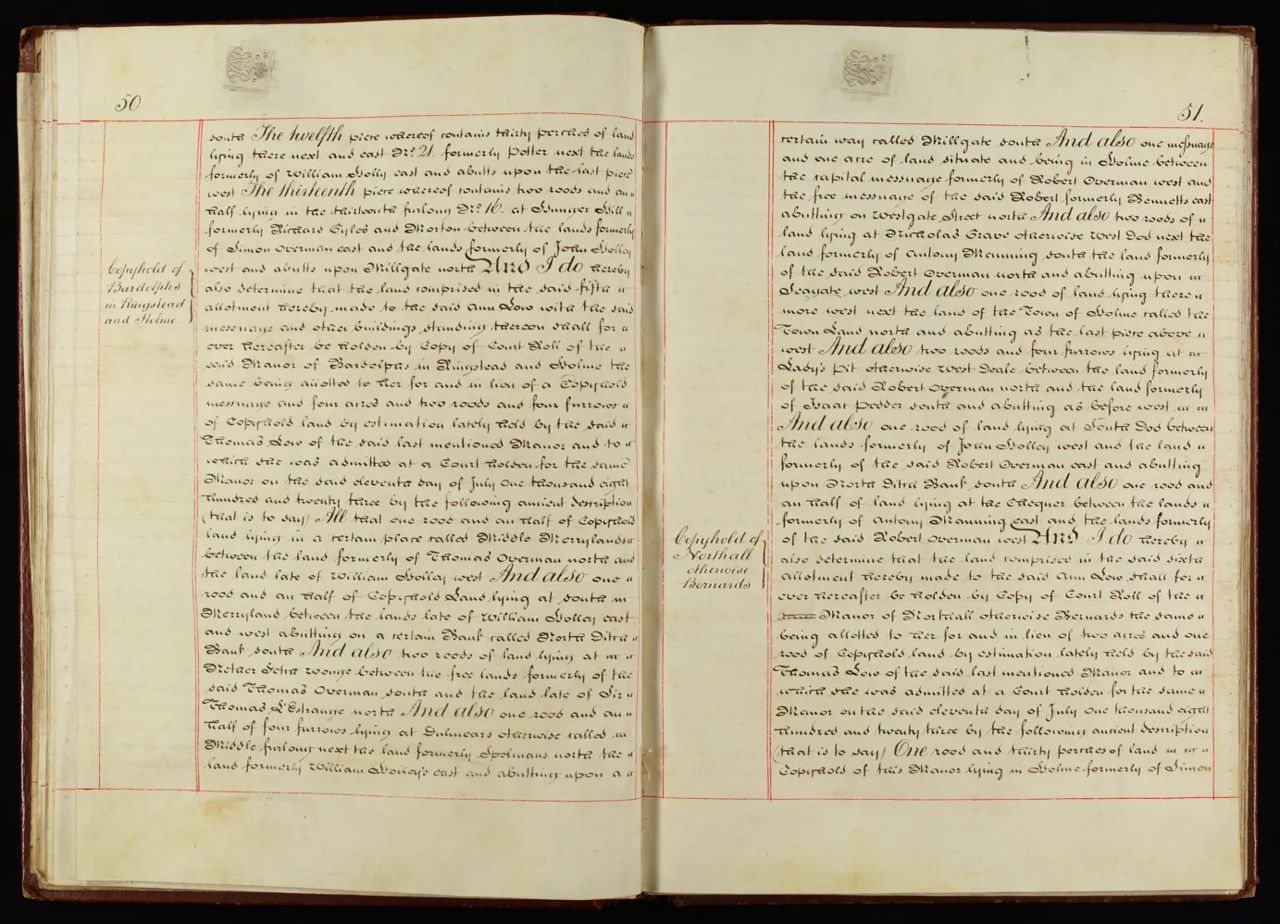 50
south The twelfth piece whereof contains thirty perches of land
lying there next and east No. 21. formerly Potter next the lands
formerly of William Holly east and abutts upon the last piece
west The thirteenth piece whereof contains two roods and an
half lying in the thirteenth furlong No. 16. at Hunger Hill
formerly Richard Gyles and Morton between the lands formerly
of Simon Overman east and the lands formerly of John Holley
west and abutts upon Millgate north And I do hereby
Copyhold of
Bardolphs
in Ringstead
and Holme
also determine that the land comprised in the said fifth
allotment hereby made to the said Ann Low with the said
messuage and other buildings standing thereon shall for
ever hereafter be holden by Copy of Court Roll of the
said Manor of Bardolphs in Ringstead and Holme the
same being allotted to her for and in lieu of a Copyhold
messuage and four acres and two roods and four furrows
of Copyhold land by estimation lately held by the said
Thomas Low of the said last mentioned Manor and to
which she was admitted at a Court holden for the same
Manor on the said eleventh day of July One thousand eight
hundred and twenty three by the following ancient description
(that is to say) All that one rood and an half of Copyhold
land lying in a certain place called Middle Merrylands
between the land formerly of Thomas Overman north and
the land late of William Holley west And also one
rood and an half of Copyhold Land lying at south
Merryland between the lands late of William Holley east
and west abutting on a certain Bank called North Ditch
Bank south And also two roods of land lying at
Nether between the free lands formerly of the
said Thomas Overman south and the land late of Sir
Thomas L'Estrange north And also one rood and an
half of four furrows lying at otherwise called
Middle furlong next the land formerly Spelmans north the
land formerly William east and abutting upon a
51.
certain way called Millgate south And also one messuage
and one acre of land situate and being in Holme between
the capital messuage formerly of Robert Overman west and
the free messuage of the said Robert formerly Bennetts east
abutting on Westgate Street north And also two roods of
land lying at Nicholas Grave otherwise West Dod next the
land formerly of Antony Manning south the land formerly
of the said Robert Overman north and abutting upon
Seagate west And also one rood of land lying there
more west next the land of the Town of Holme called the
Town Land north and abutting as the last piece above
west And also two roods and four furrows lying at
Lady's Pit otherwise West Deale between the land formerly
of the said Robert Overman north and the land formerly
of Isaac Pedder south and abutting as before west
And also one rood of land lying at South Dod between
the lands formerly of John Holley west and the land
formerly of the said Robert Overman east and abutting
upon North Ditch Bank south And also one rood and
an half of land lying at the Chequer between the lands
formerly of Antony Manning east and the lands formerly
of the said Robert Overman west And I do hereby
Copyhold of
Northall
otherwise
Bernards
also determine that the land comprised in the said sixth
allotment hereby made to the said Ann Low shall for
ever hereafter be holden by Copy of Court Roll of the
Manor of Northall otherwise Bernards the same
being allotted to her for and in lieu of two acres and one
rood of Copyhold land by estimation lately held by the said
Thomas Low of the said last mentioned Manor and to
which she was admitted at a Court holden for the same
Manor on the said eleventh day of July One thousand eight
hundred and twenty three by the following ancient description
(that is to say) One rood and thirty perches of land
Copyhold of this Manor lying in Holme formerly of Simon